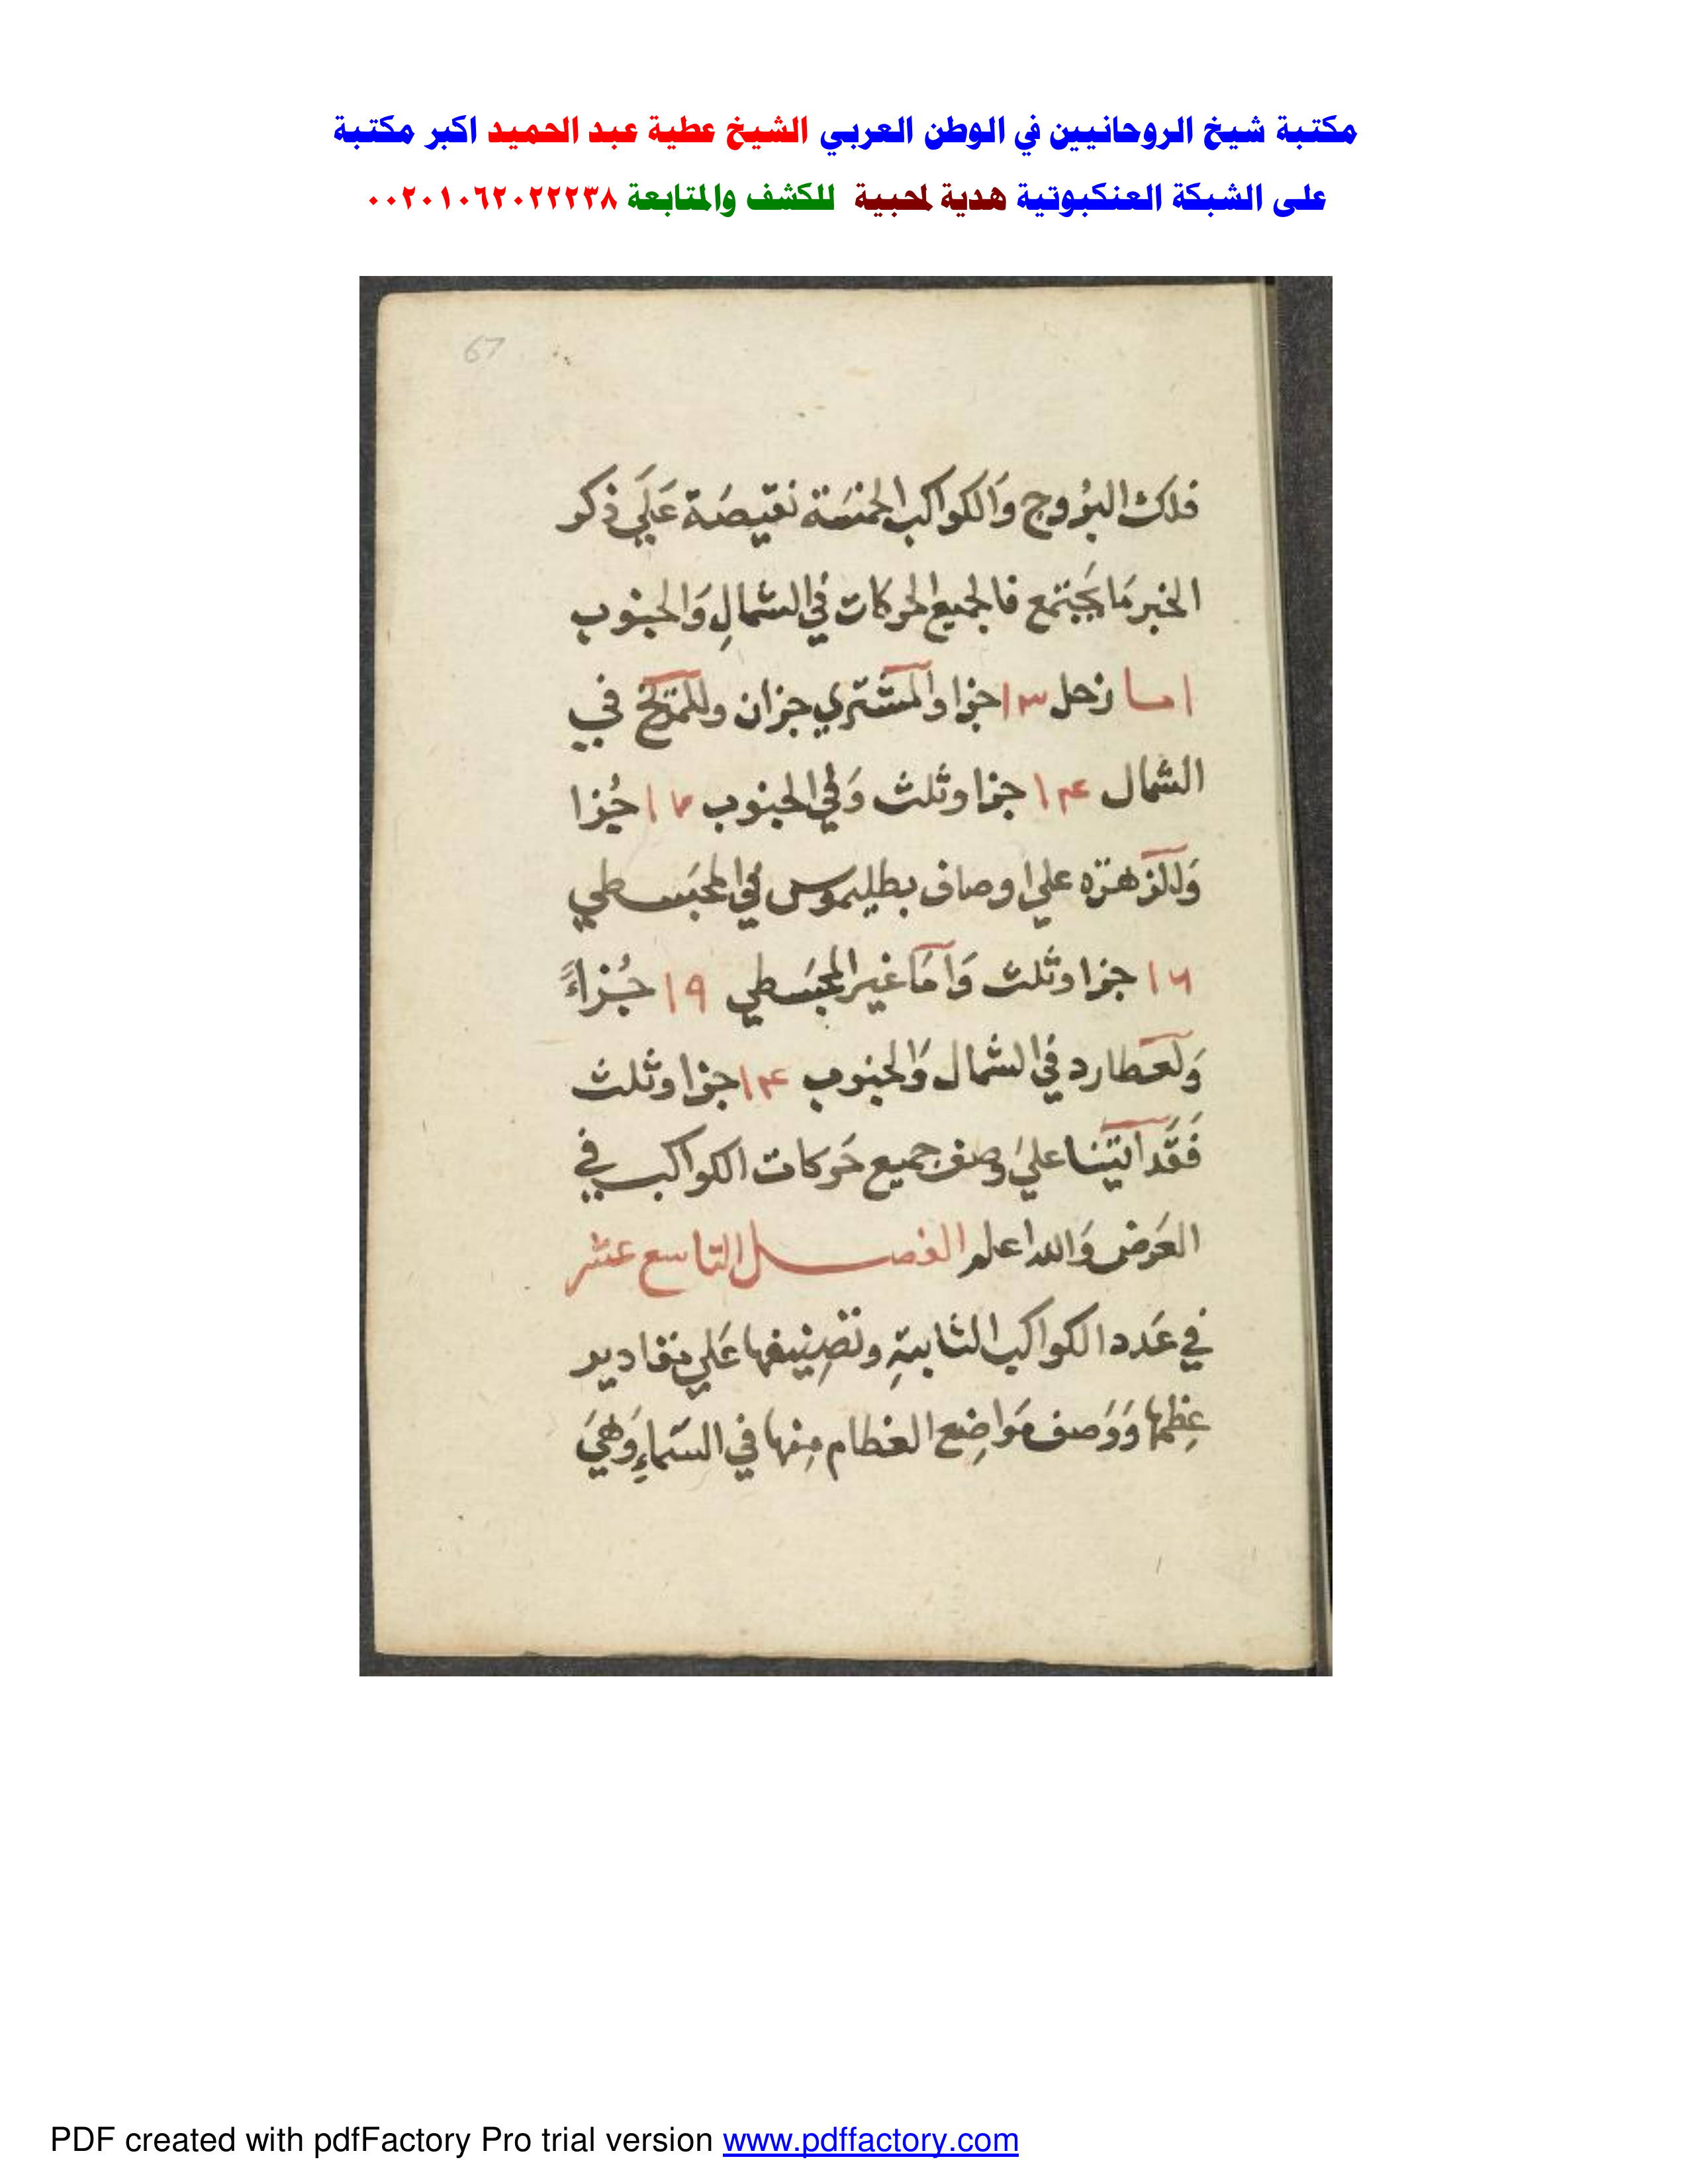 مكتبة شيخ الروحانيين في الوطن العربي الشيخ عطية عبد الحميد اكبر مكتبة
على الشبكة العنكبوتية هدية لمحبية للكشف والمتابعة ٠٠٢٠١٠٦٢٠٢٢٢٣٨
67
فلك البُروج وَالكواكب الخمسَة نقيصَة عَلَي ذكر
الخبر مَا يَجتمع فالجميع الحركات في الشمالِ وَالجنوب
اما زحل ١٣ جزا والمشتري جزان وللمريخ في
الشمال ١٤ جزا وثلث وَفي الجنوب ١٧ جُزا
وَللزهرة علي اوصاف بطليموس في المجَسطي
١٦ جزا وثلث وَامَا غير المجَسطي ١٩ جُزاءً
وَلعطارد في الشمال وَالجنوب ١٤ جزا وثلث
فَقَد اتينا علي وصف جميع حَركات الكواكب في
العَرض وَالله اعلم الفصل التاسع عشر
في عَدد الكواكب الثابتةِ وتصنِيفها عَلي مقادير
عِظمها وَوَصف مَواضِع العظام مِنها في السَماءِ وَهيَ
PDF created with pdfFactory Pro trial version www.pdffactory.com